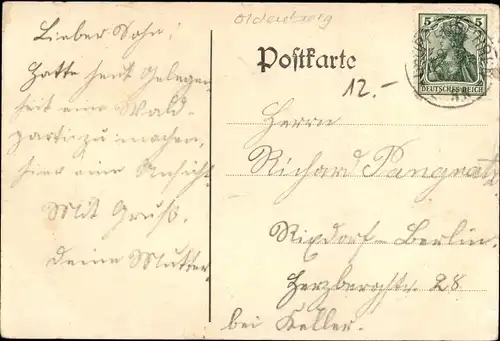 Lieber Sohn!
Hatte heut Gelegen-
heit eine Wald-
partie zu machen,
hier eine Ansicht.
Mit Gruß,
Deine Mutter
Oldenburg
Postkarte
12.-
5 5
DEUTSCHES REICH
Herrn
Richard Pangratz
Rixdorf-Berlin.
Herzbergstr 28
bei Keller.